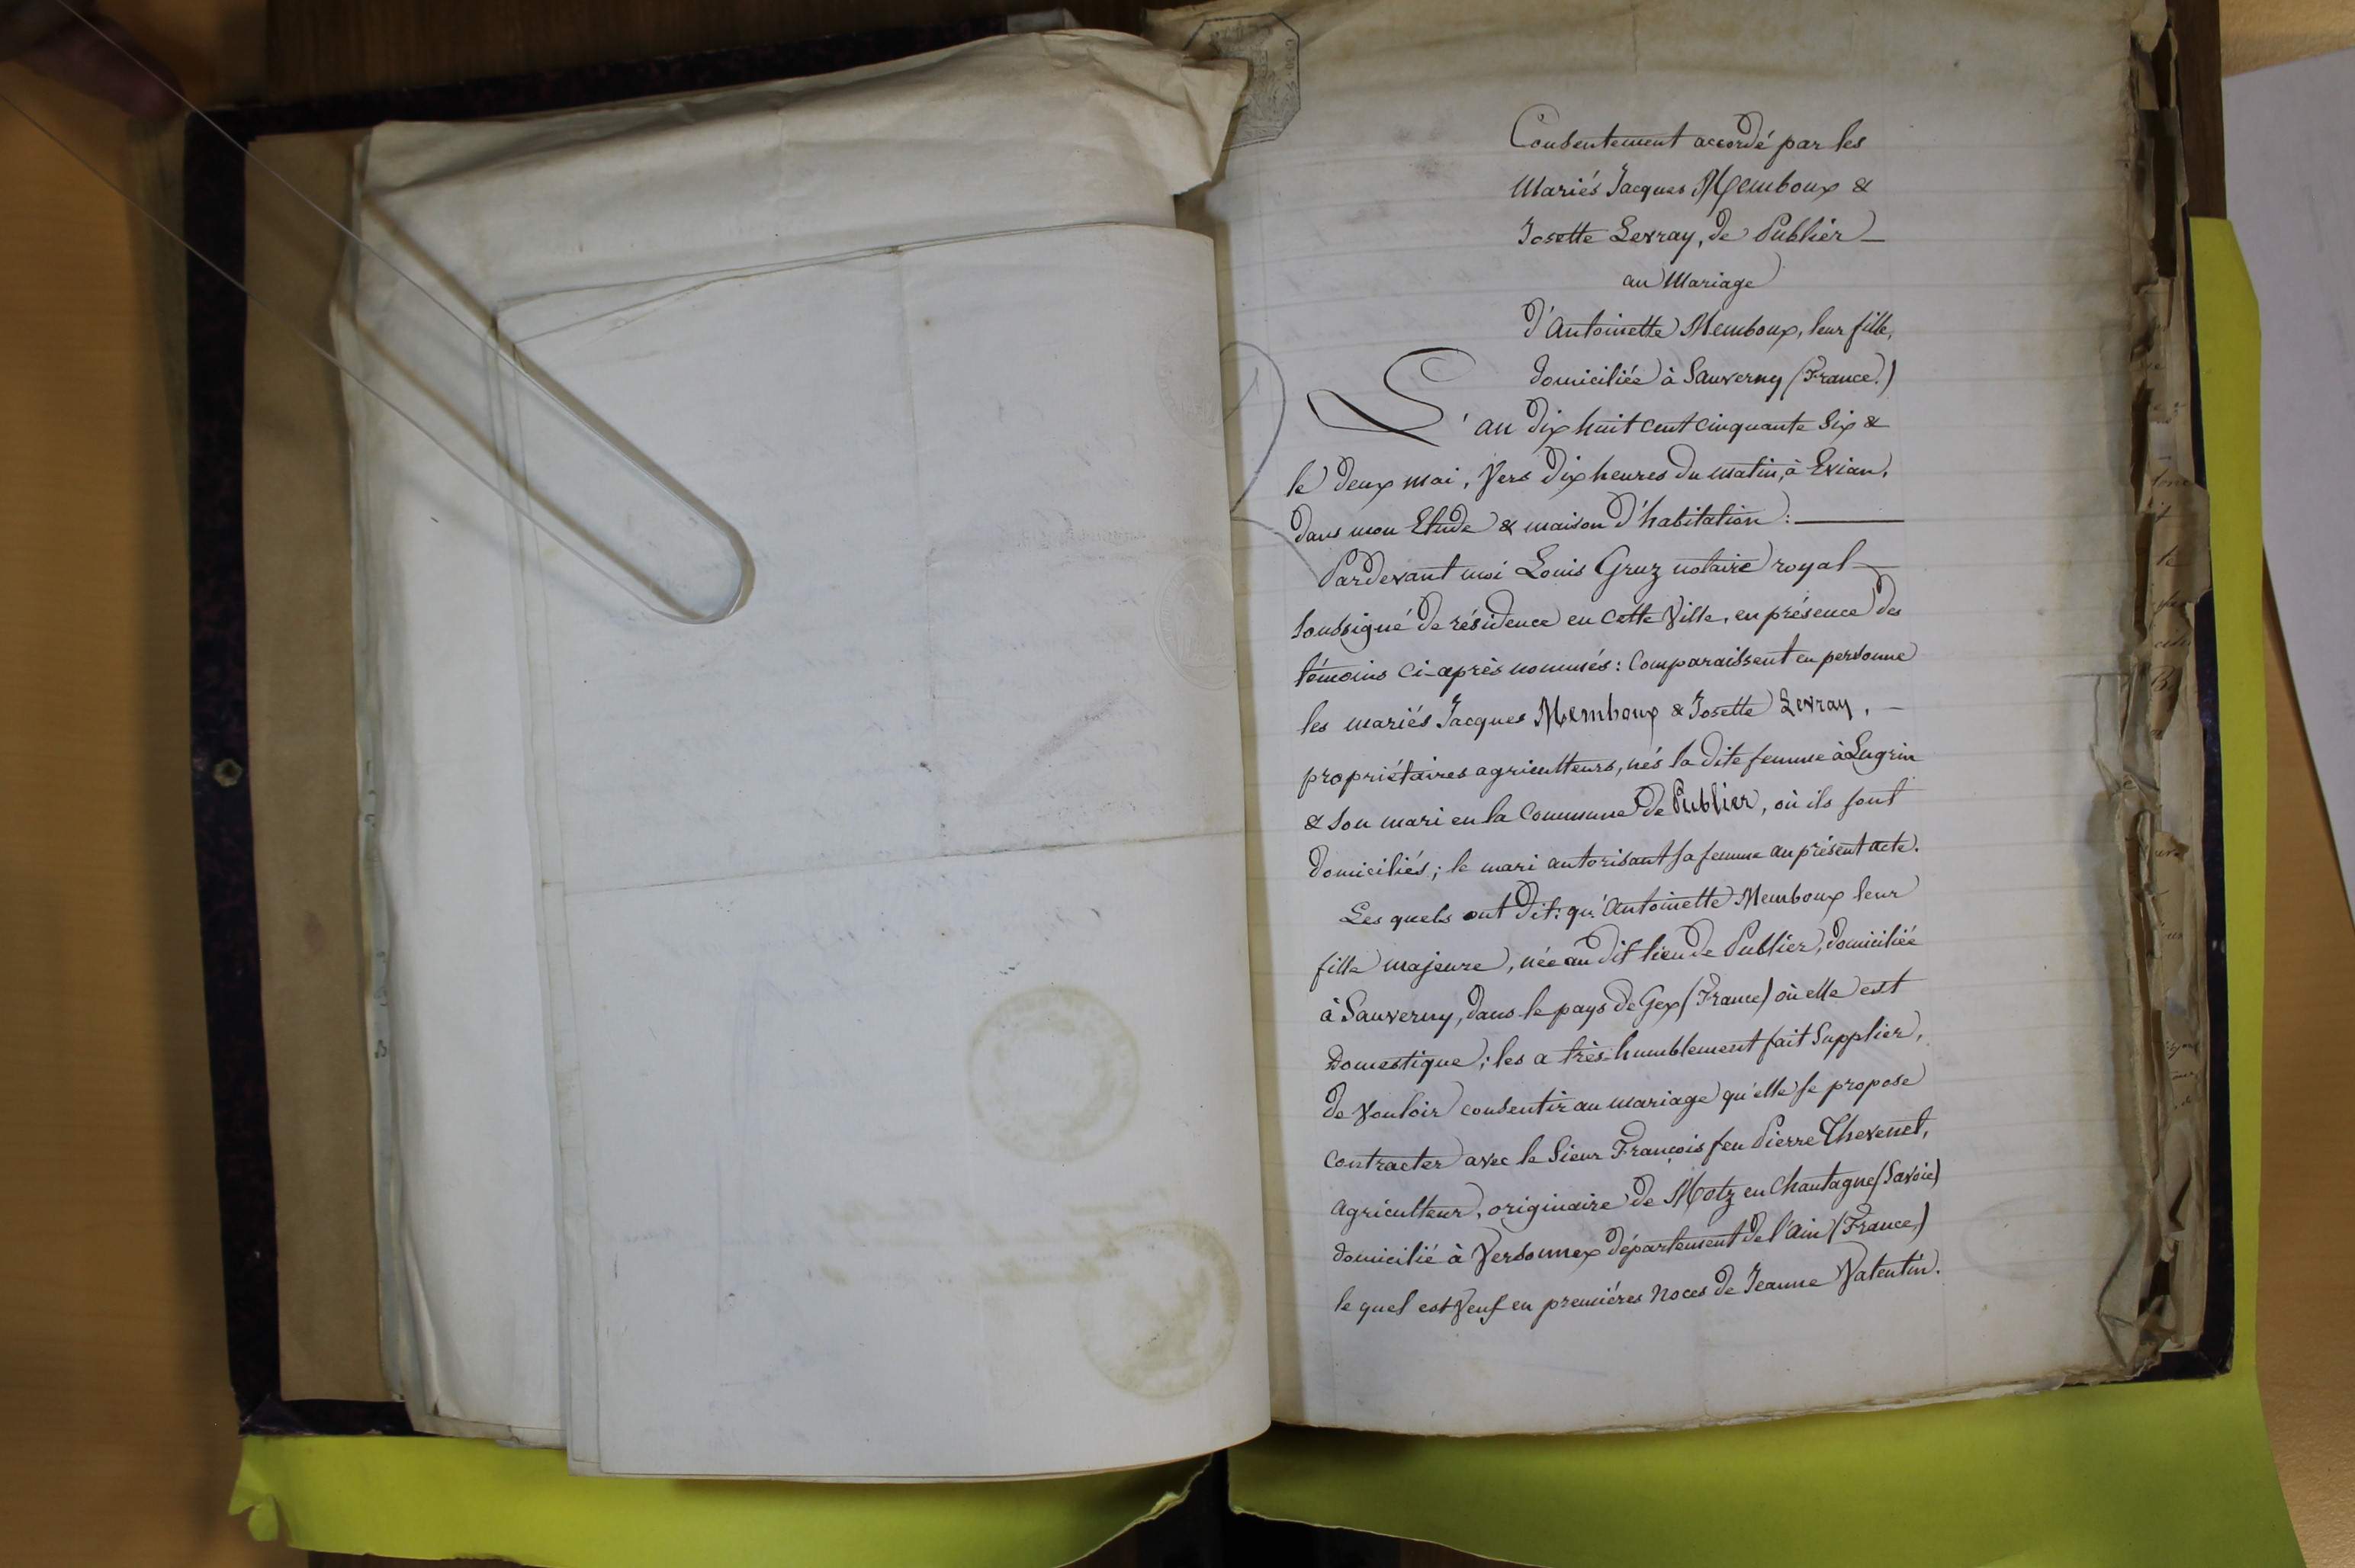 Consentement accordé par les
Mariés Jacques Memboux &
Josette Levray, de Publier —
au Mariage
d'Antoinette Memboux, leur fille,
domiciliée à Sauverny (France.)
L'an dix huit cent cinquante six &
le deux mai, Vers dix heures du matin, à Evian,
dans mon Etude & maison d'habitation : —
Pardevant moi Louis Gruz notaire royal —
soussigné de résidence en cette Ville, en présence des
témoins ci-après nommés : Comparaissent en personne
les mariés Jacques Memboux & Josette Levray, —
propriétaires agriculteurs, nés la dite femme à Lugrin
& son mari en la Commune de Publier, où ils sont
domiciliés ; le mari autorisant sa femme au présent acte.
Les quels ont dit : qu'Antoinette Memboux leur
fille majeure, née au dit lieu de Publier, domiciliée
à Sauverny, dans le pays de Gex (France) où elle est
Domestique ; les a très-humblement fait Supplier,
de Vouloir consentir au mariage qu'elle se propose
contracter avec le Sieur François feu Pierre Thevenet,
agriculteur, originaire de Motz en Chautagne (Savoie)
domicilié à Versonnex département de l'Ain (France)
le quel est Veuf en premières Noces de Jeanne Valentin.